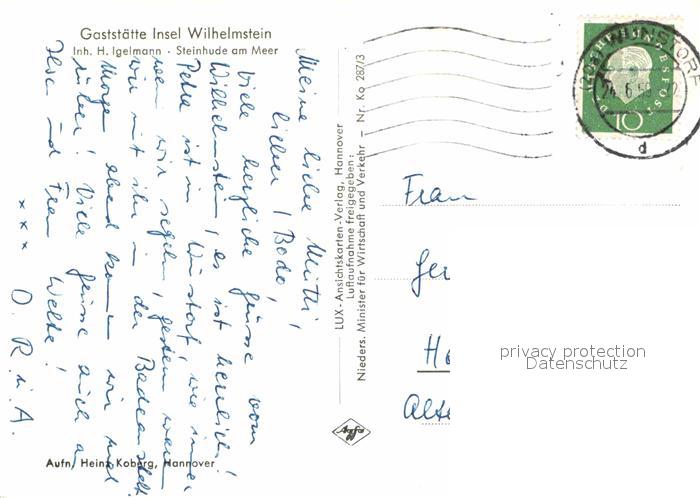 Gaststätte Insel Wilhelmstein
Inh. H. Igelmann · Steinhude am Meer
Meine liebe Mutti,
lieber Bodo,
viele herzliche Grüsse vom
Wilhelmstein, es ist herrlich!
Petra ist in Wunstorf, wie immer
wenn wir segeln, gestern waren
wir mit ihr in der Badeanstalt.
Morgen abend kommen wir mal
rüber! Viele Grüsse auch an
Ilse und Frau Welke!
x x x O. R. u. A.
Aufn. Heinz Koberg, Hannover
LUX-Ansichtskarten-Verlag, Hannover
Luftaufnahme freigegeben:
Nieders. Minister für Wirtschaft und Verkehr – Nr. Ko 287/3
Agfa
DEUTSCHE BUNDESPOST
10
WUNSTORF
d
Frau
Ger
H
Alte
privacy protection
Datenschutz